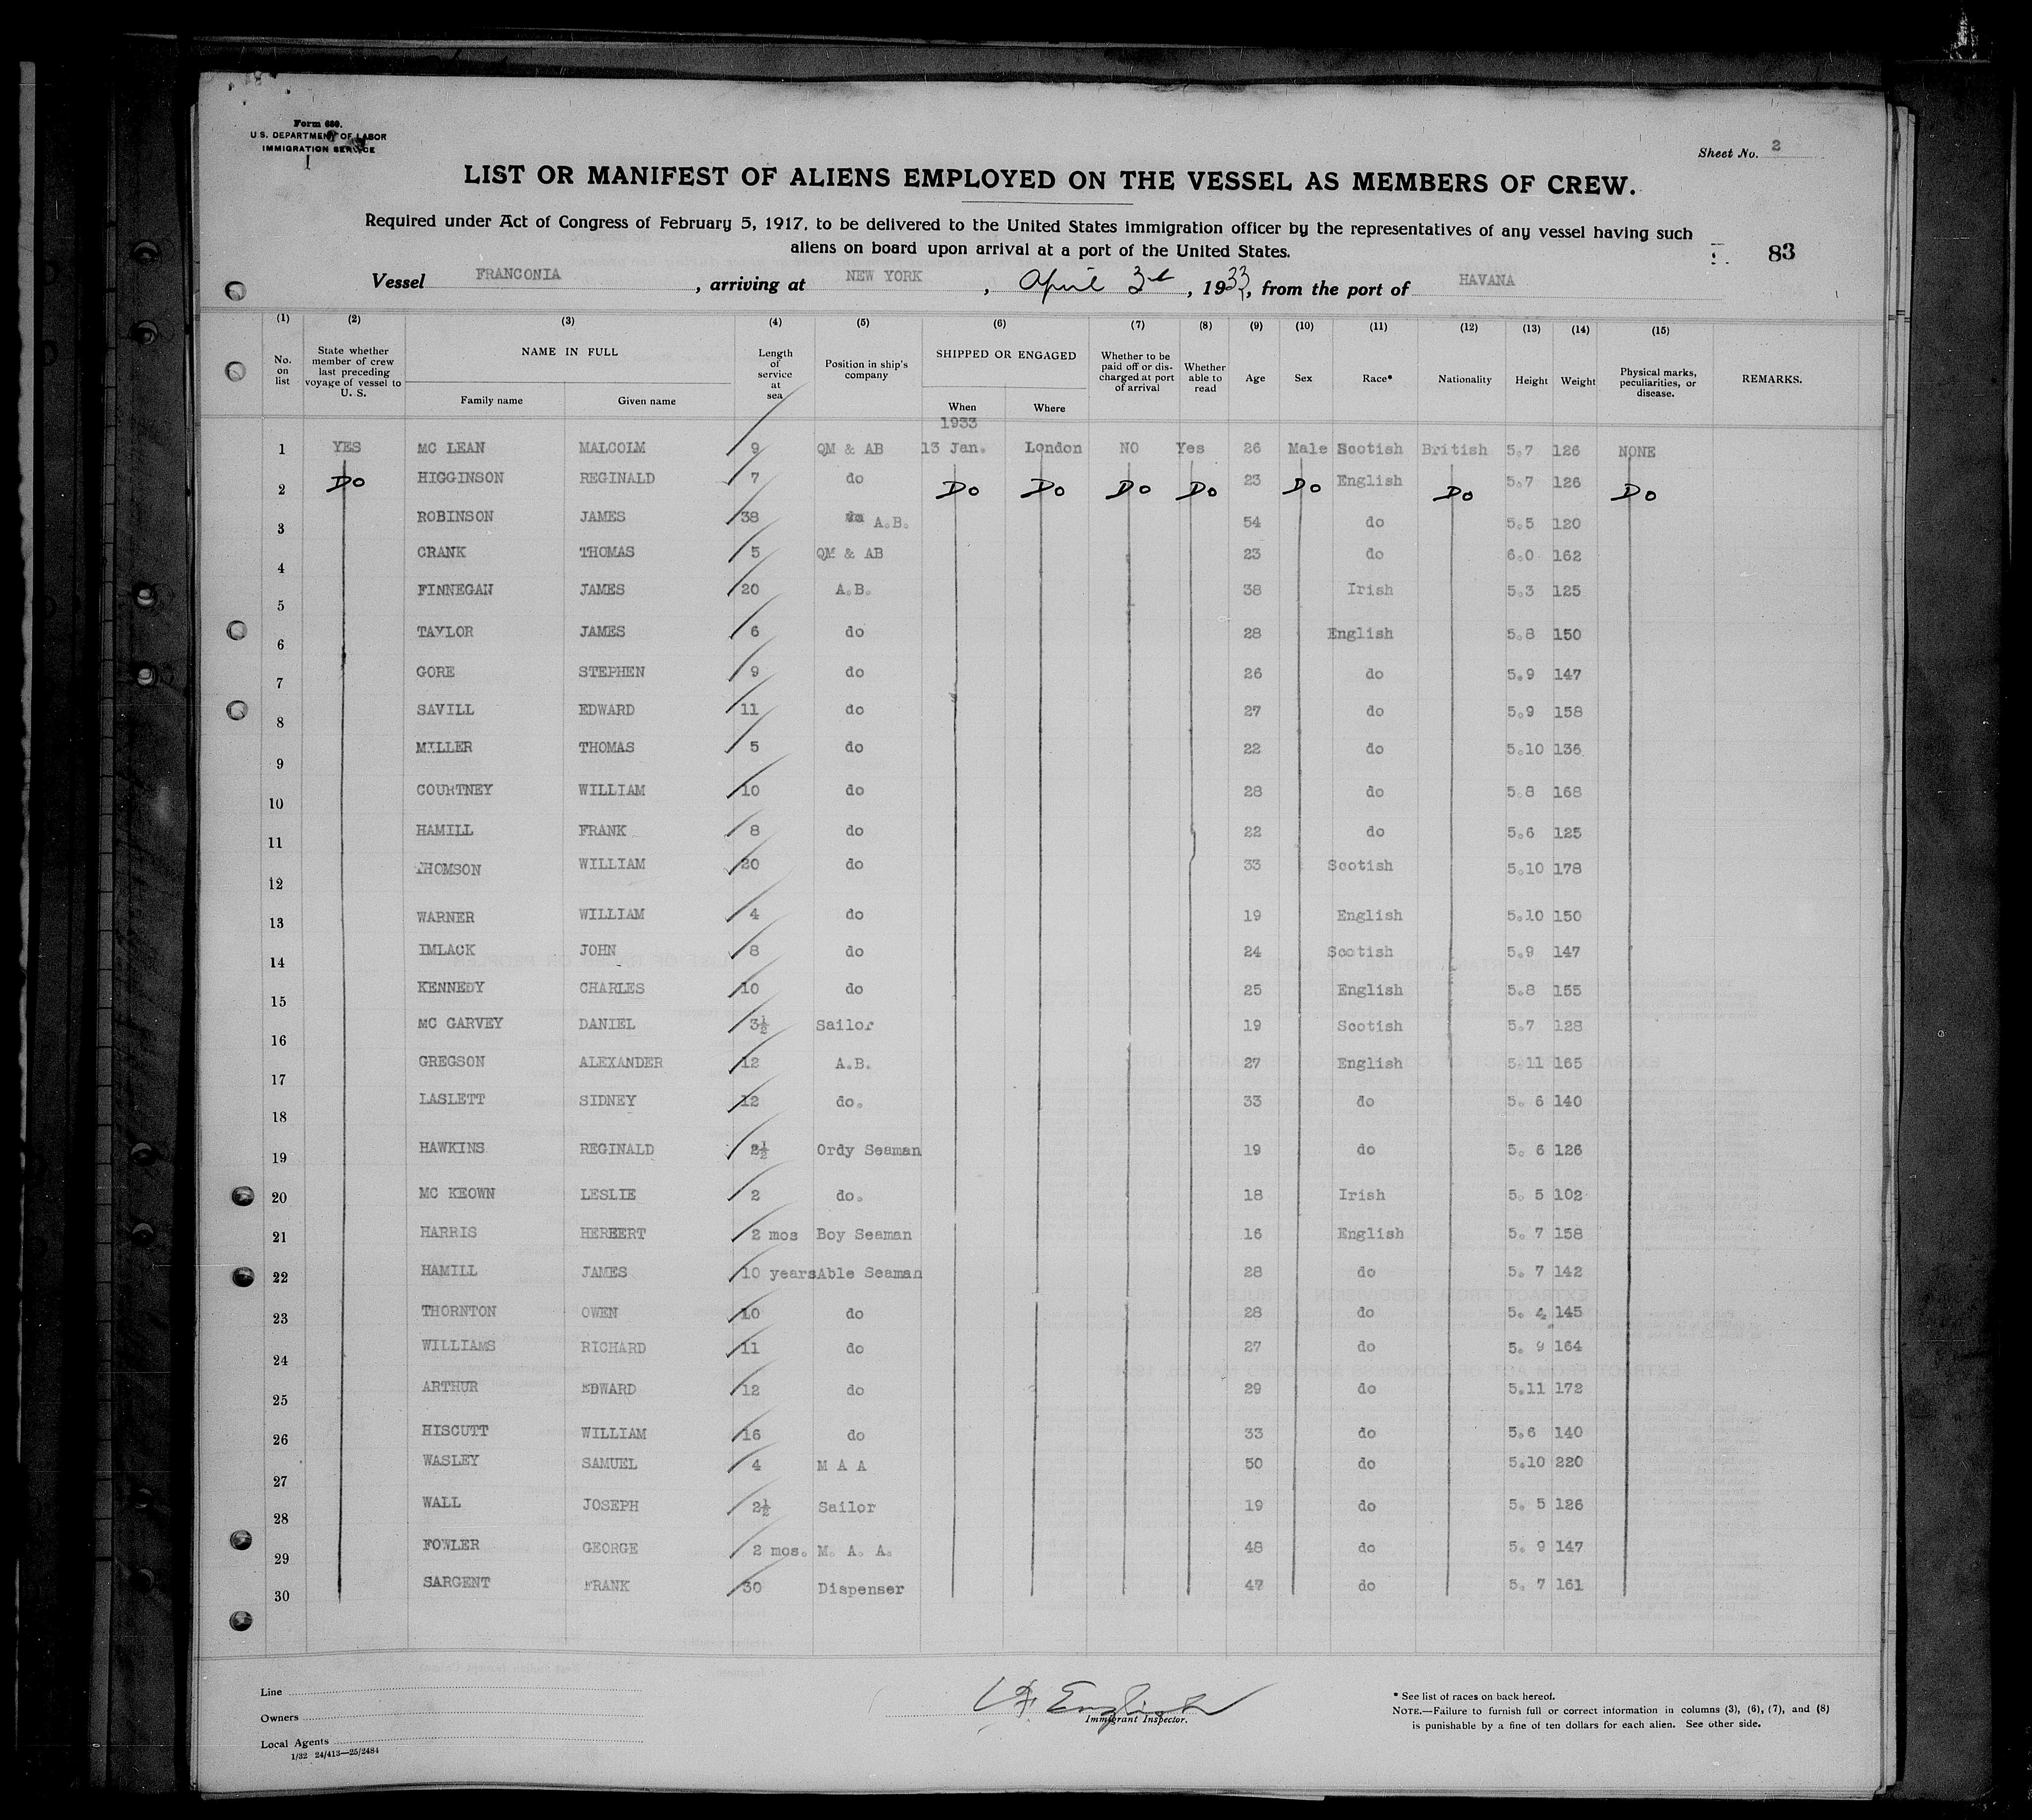 Form 680.
U.S. DEPARTMENT OF LABOR
IMMIGRATION SERVICE
Sheet No. 2
LIST OR MANIFEST OF ALIENS EMPLOYED ON THE VESSEL AS MEMBERS OF CREW.
Required under Act of Congress of February 5, 1917, to be delivered to the United States immigration officer by the representatives of any vessel having such
aliens on board upon arrival at a port of the United States.
83
Vessel FRANCONIA, arriving at NEW YORK, April 3rd, 1933, from the port of HAVANA
(1) (2) (3) (4) (5) (6) (7) (8) (9) (10) (11) (12) (13) (14) (15)
No. on list State whether member of crew last preceding voyage of vessel to U. S. NAME IN FULL Family name Given name Length of service at sea Position in ship's company SHIPPED OR ENGAGED When Where Whether to be paid off or discharged at port of arrival Whether able to read Age Sex Race* Nationality Height Weight Physical marks, peculiarities, or disease. REMARKS.
1933
1 YES MC LEAN MALCOLM 9 QM & AB 13 Jan. London NO Yes 26 Male Scotish British 5.7 126 NONE
2 Do HIGGINSON REGINALD 7 do Do Do Do Do 23 Do English Do 5.7 126 Do
3 ROBINSON JAMES 38 A.B. 54 do 5.5 120
4 CRANK THOMAS 5 QM & AB 23 do 6.0 162
5 FINNEGAN JAMES 20 A.B. 38 Irish 5.3 125
6 TAYLOR JAMES 6 do 28 English 5.8 150
7 GORE STEPHEN 9 do 26 do 5.9 147
8 SAVILL EDWARD 11 do 27 do 5.9 158
9 MILLER THOMAS 5 do 22 do 5.10 136
10 COURTNEY WILLIAM 10 do 28 do 5.8 168
11 HAMILL FRANK 8 do 22 do 5.6 125
12 THOMSON WILLIAM 20 do 33 Scotish 5.10 178
13 WARNER WILLIAM 4 do 19 English 5.10 150
14 IMLACK JOHN 8 do 24 Scotish 5.9 147
15 KENNEDY CHARLES 10 do 25 English 5.8 155
16 MC GARVEY DANIEL 3½ Sailor 19 Scotish 5.7 128
17 GREGSON ALEXANDER 12 A.B. 27 English 5.11 165
18 LASLETT SIDNEY 12 do. 33 do 5. 6 140
19 HAWKINS REGINALD 2½ Ordy Seaman 19 do 5. 6 126
20 MC KEOWN LESLIE 2 do. 18 Irish 5. 5 102
21 HARRIS HERBERT 2 mos Boy Seaman 16 English 5. 7 158
22 HAMILL JAMES 10 years Able Seaman 28 do 5. 7 142
23 THORNTON OWEN 10 do 28 do 5. 4 145
24 WILLIAMS RICHARD 11 do 27 do 5. 9 164
25 ARTHUR EDWARD 12 do 29 do 5.11 172
26 HISCUTT WILLIAM 16 do 33 do 5.6 140
27 WASLEY SAMUEL 4 M A A 50 do 5.10 220
28 WALL JOSEPH 2½ Sailor 19 do 5. 5 126
29 FOWLER GEORGE 2 mos. M. A. A. 48 do 5. 9 147
30 SARGENT FRANK 30 Dispenser 47 do 5. 7 161
Line
Owners
Local Agents
1/32 24/413—25/2484
English
Immigrant Inspector.
* See list of races on back hereof.
NOTE.—Failure to furnish full or correct information in columns (3), (6), (7), and (8)
is punishable by a fine of ten dollars for each alien. See other side.